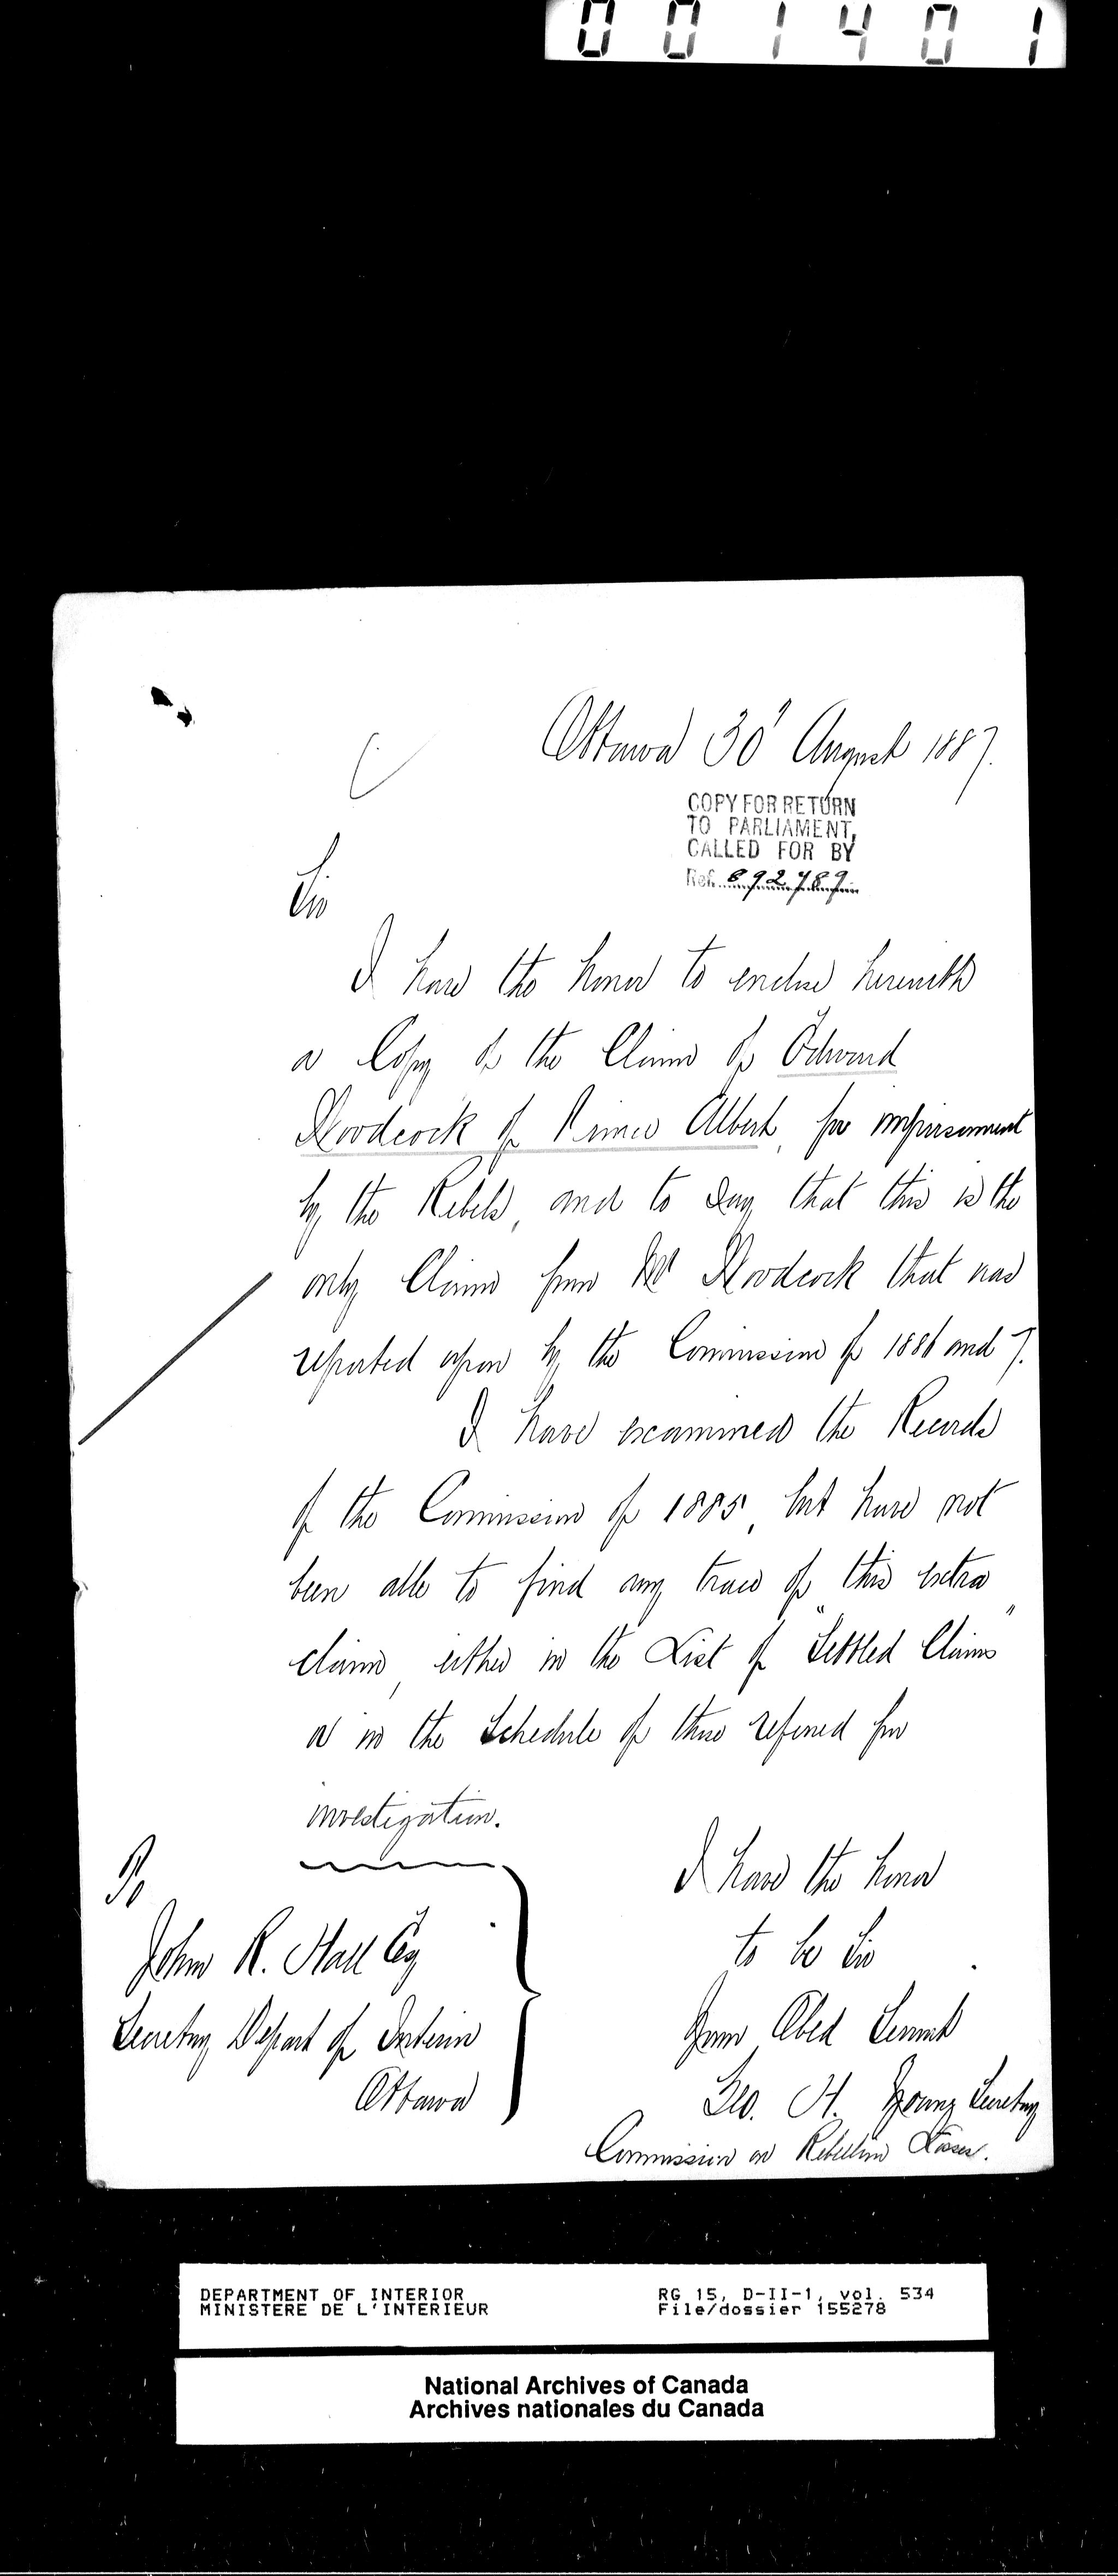 001401
Ottawa 30' August 1887.
COPY FOR RETURN
TO PARLIAMENT,
CALLED FOR BY
Ref. 892789
Sir
I have the honor to enclose herewith
a Copy of the Claim of Edward
Woodcock of Prince Albert, for imprisonment
by the Rebels, and to say that this is the
only Claim from Mr Woodcock that was
reported upon by the Commission of 1886 and 7.
I have examined the Records
of the Commission of 1885, but have not
been able to find any trace of this extra
claim, either in the List of "Settled Claims"
or in the Schedule of those refered for
investigation.
I have the honor
to be Sir
Your Obed Servant
Geo. H. Young Secretary
Commission on Rebellion Losses.
To
John R. Hall Esq
Secretary Depart of Interior
Ottawa
DEPARTMENT OF INTERIOR
MINISTERE DE L'INTERIEUR
RG 15, D-II-1, vol. 534
File/dossier 155278
National Archives of Canada
Archives nationales du Canada